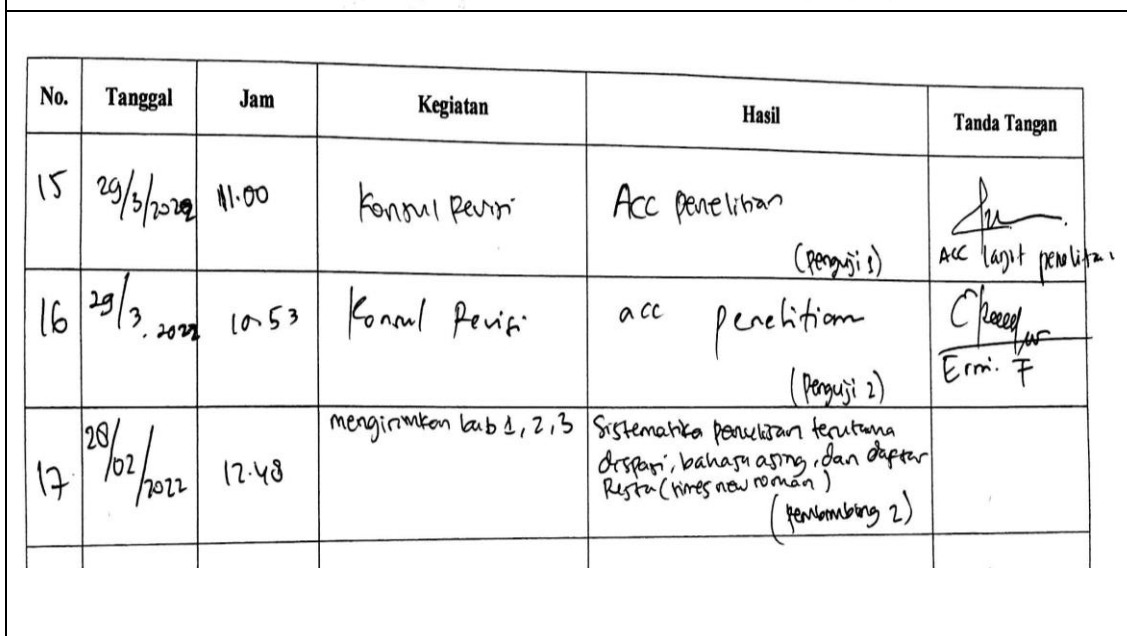 No. Tanggal Jam Kegiatan Hasil Tanda Tangan
15 29/3/2022 11.00 Konsul Revisi Acc penelitian
(Penguji 1)
Acc lanjt penelitian
16 29/3.2022 10.53 Konsul Revisi acc penelitian
(Penguji 2)
Erni. F
17. 28/02/2022 12.48 mengirimkan bab 1, 2, 3 Sistematika penulisan terutama
dispasi, bahasa asing, dan daftar
(times new roman)
(pembimbing 2)